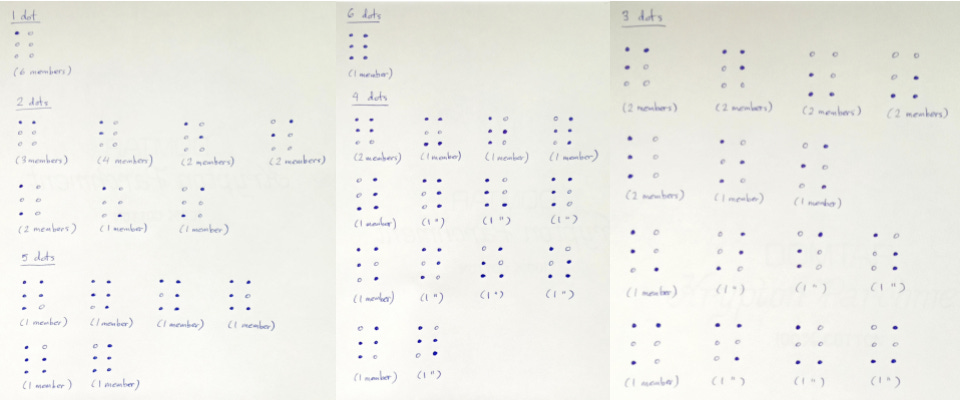 1 dot
(6 members)
2 dots
(3 members) (4 members) (2 members) (2 members)
(2 members) (1 member) (1 member)
5 dots
(1 member) (1 member) (1 member) (1 member)
(1 member) (1 member)
6 dots
(1 member)
4 dots
(2 members) (1 member) (1 member) (1 member)
(1 member) (1 ") (1 ") (1 ")
(1 member) (1 ") (1 ") (1 ")
(1 member) (1 ")
3 dots
(2 members) (2 members) (2 members) (2 members)
(2 members) (1 member) (1 member)
(1 member) (1 ") (1 ") (1 ")
(1 member) (1 ") (1 ") (1 ")